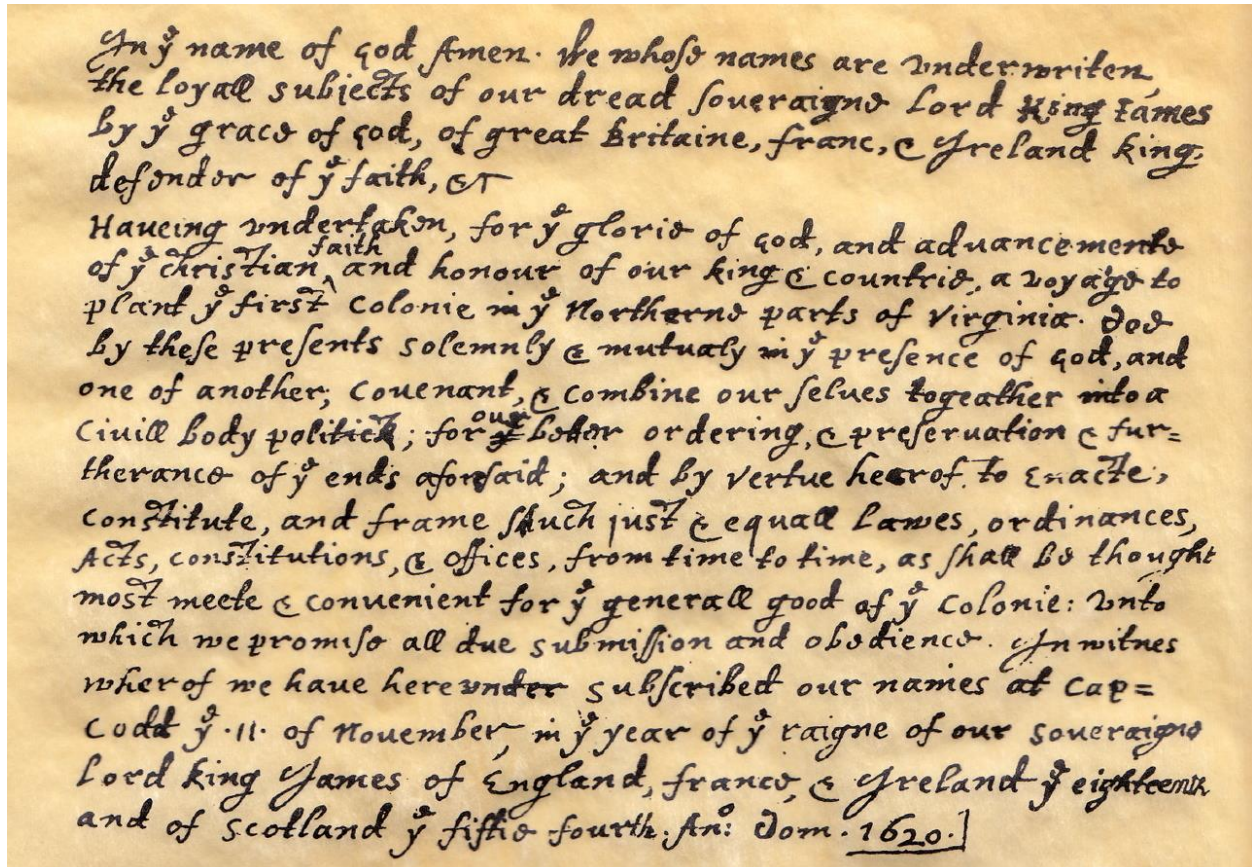 In yᵉ name of god Amen. We whose names are vnderwriten,
the loyall subjects of our dread soueraigne Lord King Iames
by yᵉ grace of god, of great Britaine, franc, & Ireland king,
defender of yᵉ faith, &c
Haueing vndertaken, for yᵉ glorie of god, and aduancemente
of yᵉ christian ^faith and honour of our king & countrie, a voyage to
plant yᵉ first colonie in yᵉ Northerne parts of Virginia. doe
by these presents solemnly & mutualy in yᵉ presence of god, and
one of another; couenant, & combine our selues togeather into a
Ciuill body politick; for our better ordering, & preseruation & fur=
therance of yᵉ ends aforesaid; and by vertue hearof to Enacte,
constitute, and frame shuch just & equall Lawes, ordinances,
Acts, constitutions, & offices, from time to time, as shall be thought
most meete & conuenient for yᵉ generall good of yᵉ Colonie: vnto
which we promise all due submission and obedience. In witnes
wherof we have here vnder subscribed our names at Cap=
Codd yᵉ ·11· of Nouember, in yᵉ year of yᵉ raigne of our soueraigne
Lord king James of England, france, & Ireland yᵉ eighteenth
and of scotland yᵉ fiftie fourth. Anᵒ: Dom. 1620.]